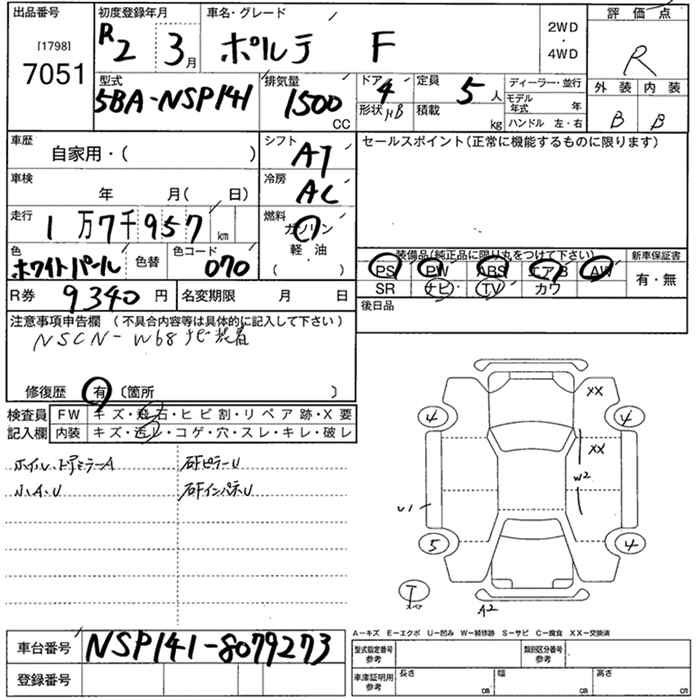 出品番号 初度登録年月 車名・グレード 評価点
[1798]
7051 R2 3月 ポルテ F 2WD・4WD R
型式 排気量 ドア 4 定員 5人 ディーラー・並行 外装 内装
5BA-NSP141 1500 CC 形状 HB 積載 kg モデル年式 年 B B
ハンドル 左・右
車歴 自家用・( ) シフト AT セールスポイント(正常に機能するものに限ります)
車検 年 月( 日) 冷房 AC
走行 1万7千957 km 燃料 ガソリン
軽・油
( )
色 ホワイトパール 色替 色コード 070
装備品(純正品に限り丸をつけて下さい) 新車保証書
PS PW ABS エアB AW 有・無
SR ナビ TV カワ
R券 9340円 名変期限 月 日 後日品
注意事項申告欄 (不具合内容等は具体的に記入して下さい)
NSCN-W68ナビ装着
修復歴 有 〔箇所 〕
検査員 FW キズ・飛石・ヒビ割・リペア跡・X要
記入欄 内装 キズ・汚レ・コゲ・穴・スレ・キレ・破レ
ホイル、ドアミラーA 右Fピラー U
小A、U 右Fインパネ U
XX
4 4
XX
W2
U1
5 4
T
スペア
A2
A-キズ E-エクボ U-凹み W-補修跡 S-サビ C-腐食 XX-交換済
車台番号 NSP141-8079273 型式指定番号 参考 類別区分番号 参考
登録番号 車庫証明用 参考 長さ cm 幅 cm 高さ cm